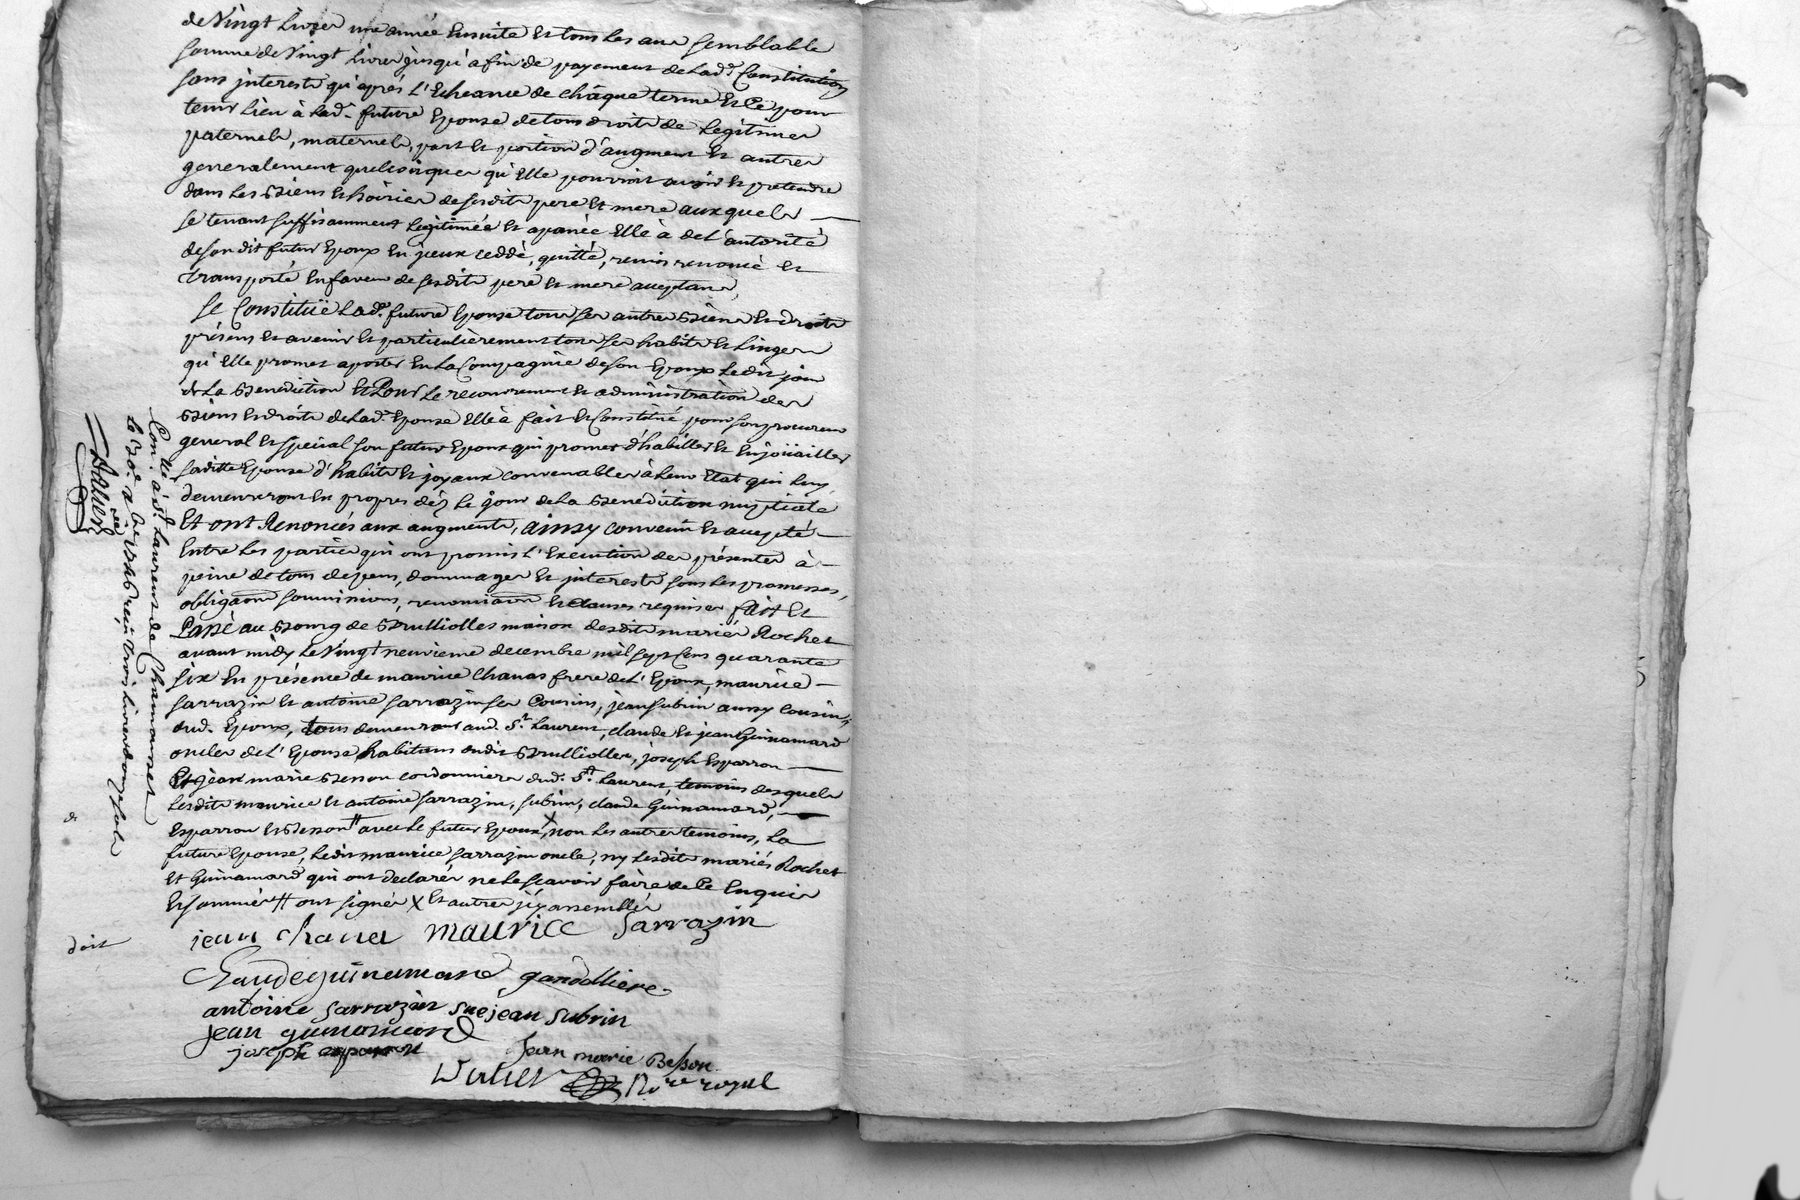 de Vingt livres une année ensuite et tous les ans semblable
somme de Vingt livres jusqu'à fin de payement de lad.e Constitution
sans interests qu'après l'Echeance de châque terme Et Ce pour
tenir lieu à lad.e future Epouse de tous droits de legitimes
paternels, maternels, part et portion d'augment et autres
generalement quelconques qu'elle pourroit avoir et pretendre
dans les Biens et hoiries de sesdits pere et mere auxquels
se tenant suffisamment legitimée et apanée elle à de l'autorité
de son dit futur Epoux en jceux ceddé, quitté, remis renoncé et
transporté en faveur de sesdits pere et mere acceptans,
Se Constitüe lad.e future Epouse tous ses autres Biens et droits
présens et avenir et particulièrement tous ses habits et linges
qu'elle promet aporter en la Compagnie de son Epoux ledit jour
de la Benediction et Pour le recouvrement et administration des
Biens et droits de lad.e Epouse elle à fait et Constitué pour son procureur
general et special son futur Epoux qui promet d'habiller et enjoüailler
saditte Epouse d'habits et joyaux convenables à leur Etat qui luy
demeureront en propres déz le jour de la Benediction nuptiale
Et ont Renoncés aux augments, ainsy convenû et accepté
Entre les parties qui ont promis l'Execution des présentes à
peine de tous depens, dommages et jnterests sous les promesses,
obligaõns soumissions, renonciaõns et clauses requises fait Et
Passé au Bourg de Brulliolles maison desdits mariés Rochet
avant midy le Vingt neuvieme decembre mil sept Cens quarante
six En présence de maurice Chanas frere de l'Epoux, maurice
Sarrazin et antoine Sarrazin ses Cousins, jean Subrin aussy Cousin
dud. Epoux, tous demeurant aud. S.t Laurent, claude et jean Guinamard
oncles de l'Epouse habitans dudit Brulliolles, joseph Esparron
Et jean marie Besson cordonniers dud. S.t Laurent, temoins desquels
lesdits maurice et antoine Sarrazin, Subrin, claude Guinamard,
Esparron et Besson # avec le futur Epoux X, non les autres temoins, la
future Epouse, ledit maurice Sarrazin oncle, ny lesdits mariés Rochet
et Guinamard qui ont declarés ne le sçavoir faire de Ce Enquis
Et sommés # ont signés X et autres jcy assemblés
jean chanas maurice Sarrazin
Claude guinamard gandolliere
antoine sarrazin jean subrin
jean guinamard
joseph esparron
jean marie Besson
No.re royal
Con.lé à S.t Laurent de Chamousset
le 30.e Xbre 1746 reçu trois livres douze sols
doit